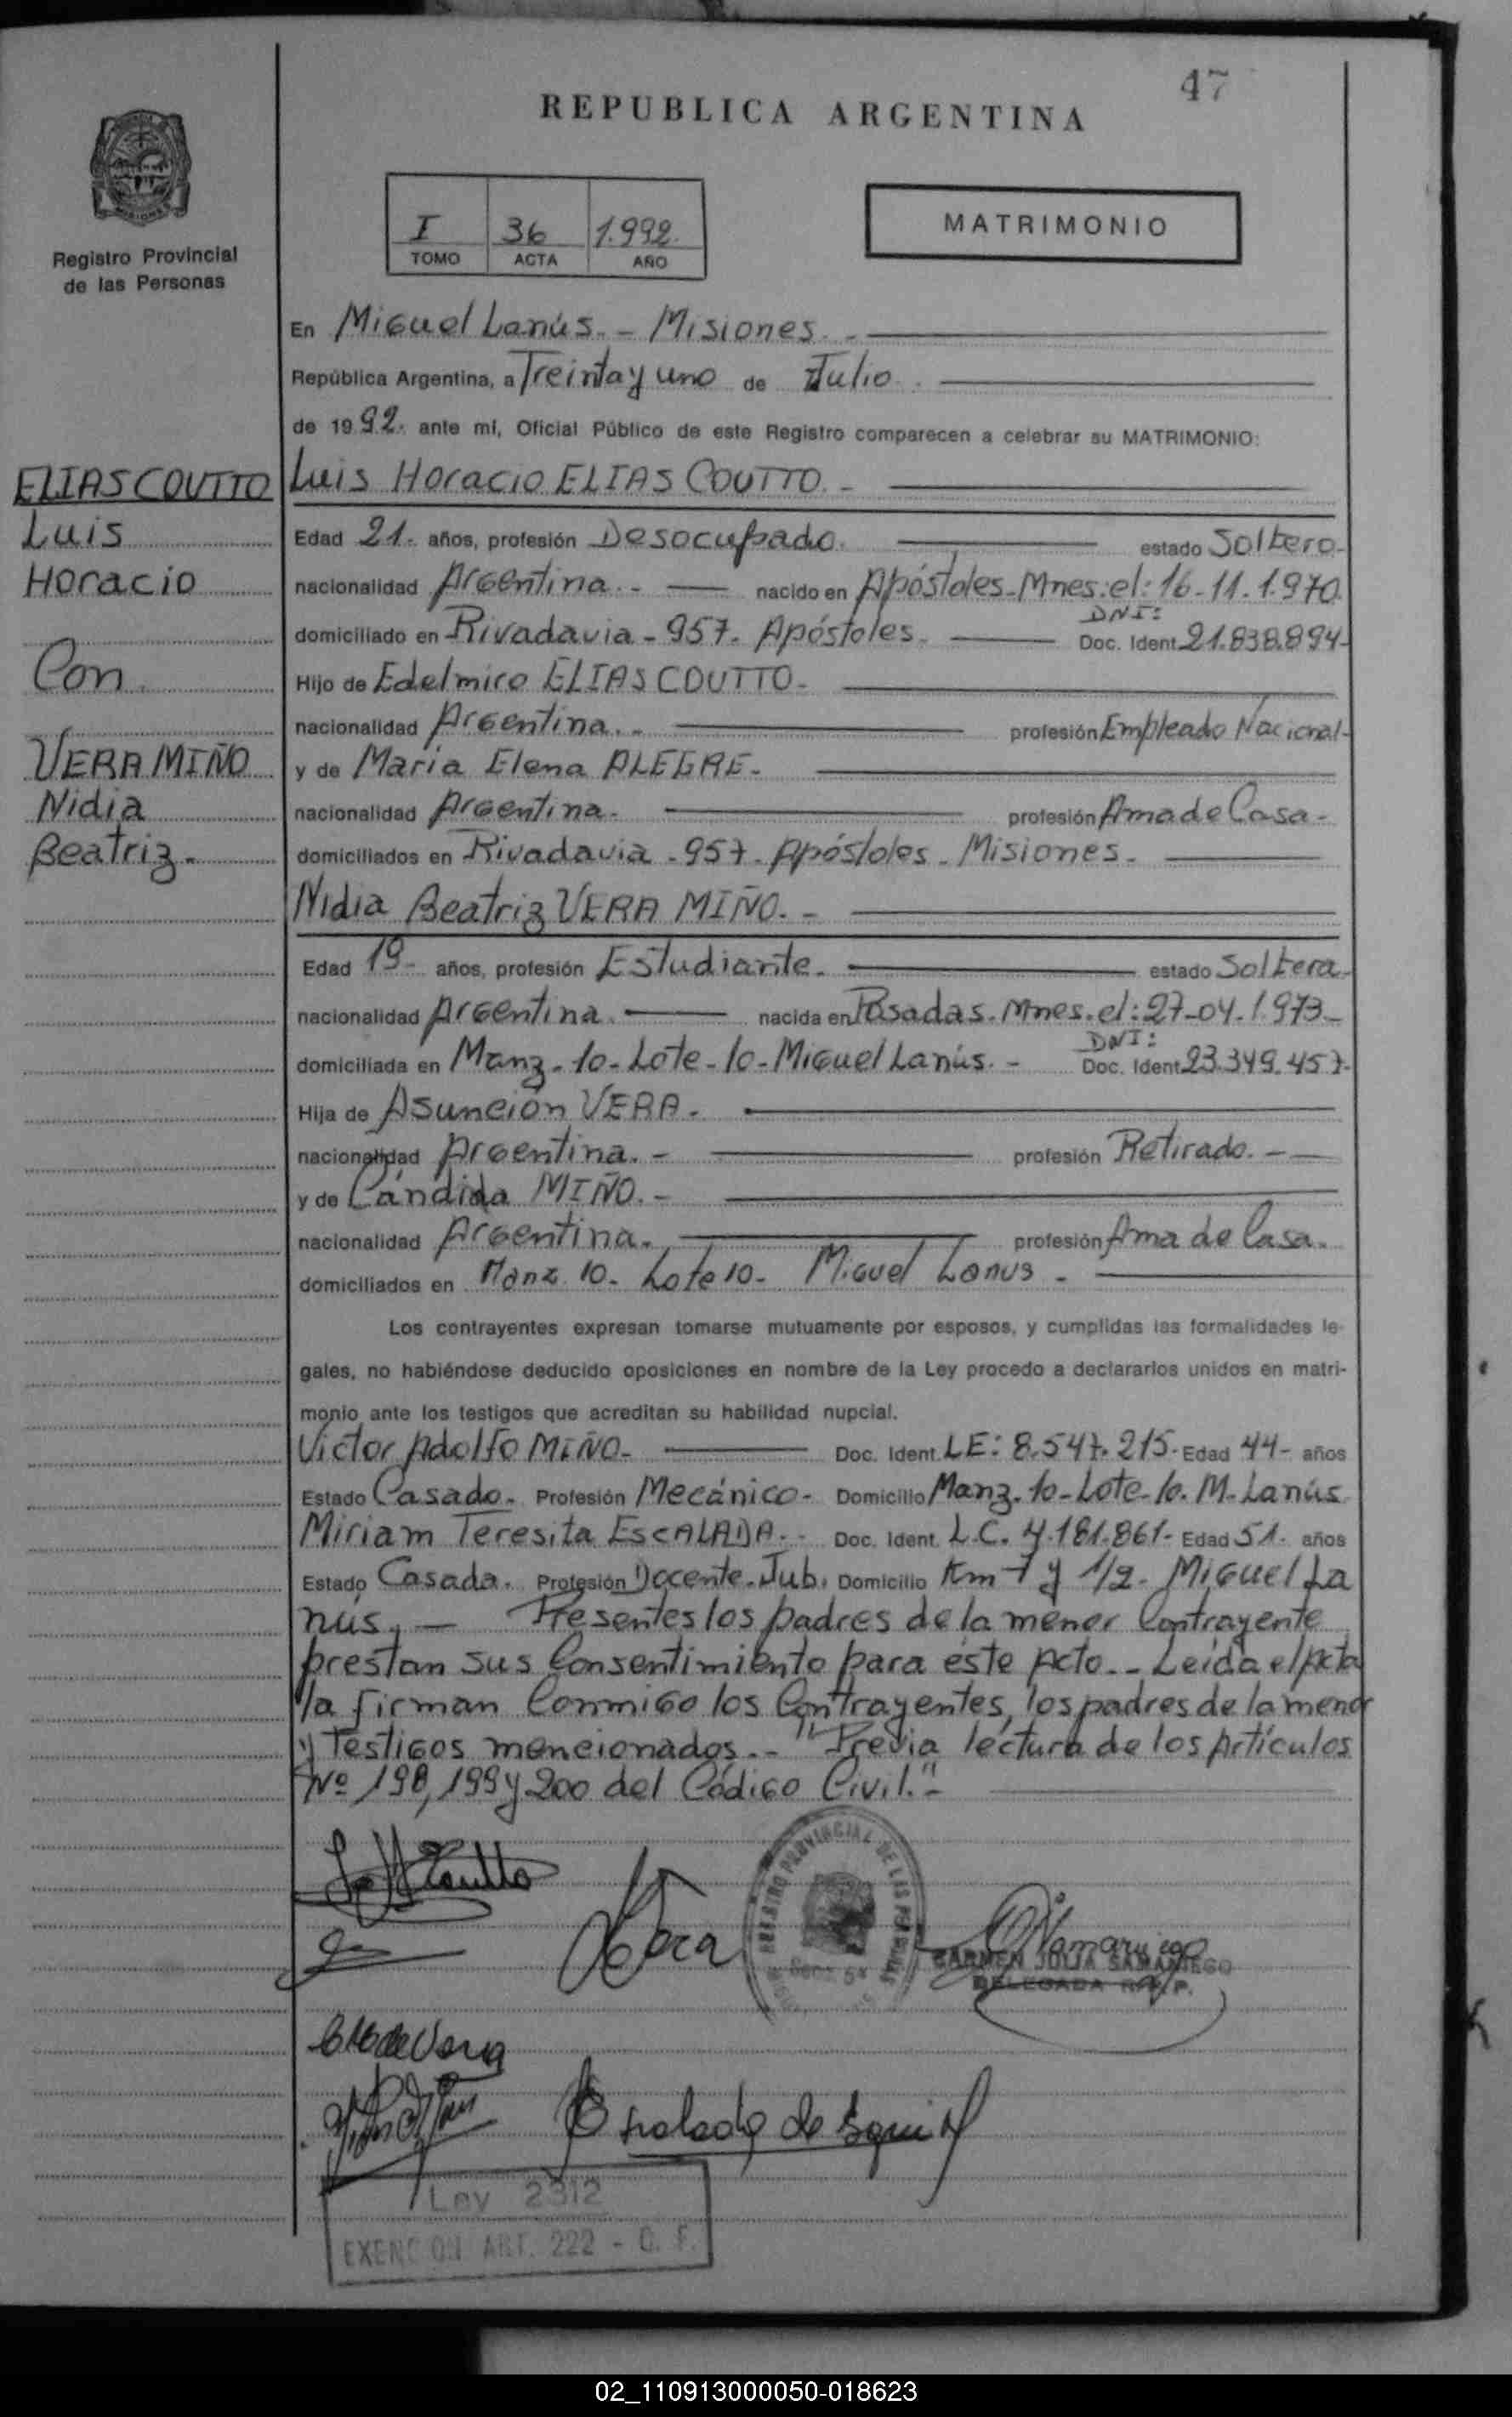 47
REPUBLICA ARGENTINA
I 36 1.992.
TOMO ACTA AÑO
MATRIMONIO
MISIONES
Registro Provincial
de las Personas
En Miguel Lanús. - Misiones. -
República Argentina, a Treinta y uno de Julio.
de 1992. ante mí, Oficial Público de este Registro comparecen a celebrar su MATRIMONIO:
ELIAS COUTTO
Luis
Horacio
Con
VERA MIÑO
Nidia
Beatriz.
Luis Horacio ELIAS COUTTO. -
Edad 21. años, profesión Desocupado. estado Soltero-
nacionalidad Argentina. - nacido en Apóstoles-Mnes: el: 16-11.1.970.
domiciliado en Rivadavia - 957. Apóstoles. DNI: Doc. Ident. 21.838.894-
Hijo de Edelmiro ELIAS COUTTO-
nacionalidad Argentina. - profesión Empleado Nacional-
y de María Elena ALEGRE-
nacionalidad Argentina- profesión Ama de Casa-
domiciliados en Rivadavia - 957- Apóstoles - Misiones-
Nidia Beatriz VERA MIÑO. -
Edad 19- años, profesión Estudiante- estado Soltera-
nacionalidad Argentina. nacida en Posadas. Mnes. el: 27-04-1.973-
domiciliada en Manz- 10- Lote- 10- Miguel Lanús. - DNI: Doc. Ident. 23.349.457-
Hija de Asunción VERA-
nacionalidad Argentina. - profesión Retirado. -
y de Cándida MIÑO. -
nacionalidad Argentina. profesión Ama de Casa.
domiciliados en Manz 10- Lote 10- Miguel Lanus -
Los contrayentes expresan tomarse mutuamente por esposos, y cumplidas las formalidades le-
gales, no habiéndose deducido oposiciones en nombre de la Ley procedo a declararlos unidos en matri-
monio ante los testigos que acreditan su habilidad nupcial.
Victor Adolfo MIÑO- Doc. Ident. LE: 8.547.215- Edad 44- años
Estado Casado- Profesión Mecánico- Domicilio Manz. 10-Lote-10. M. Lanús
Miriam Teresita EsCALADA. - Doc. Ident. L.C. 4.181.861- Edad 51. años
Estado Casada. Profesión Docente. Jub. Domicilio Km 7 y 1/2. Miguel La
nús. - Presentes los padres de la menor Contrayente
prestan sus Consentimiento para éste Acto. - Leída el Acta
la firman Conmigo los Contrayentes, los padres de la menor
y Testigos mencionados. - "Previa lectura de los Artículos
Nº 198, 199 y 200 del Código Civil." -
Vera
REGISTRO PROVINCIAL DE LAS PERSONAS
CARMEN JULIA SAMANIEGO
DELEGADA R.P.P.
de Vera
Escalada de
Ley 2312
EXENCION ART. 222 - C. F.
02_110913000050-018623